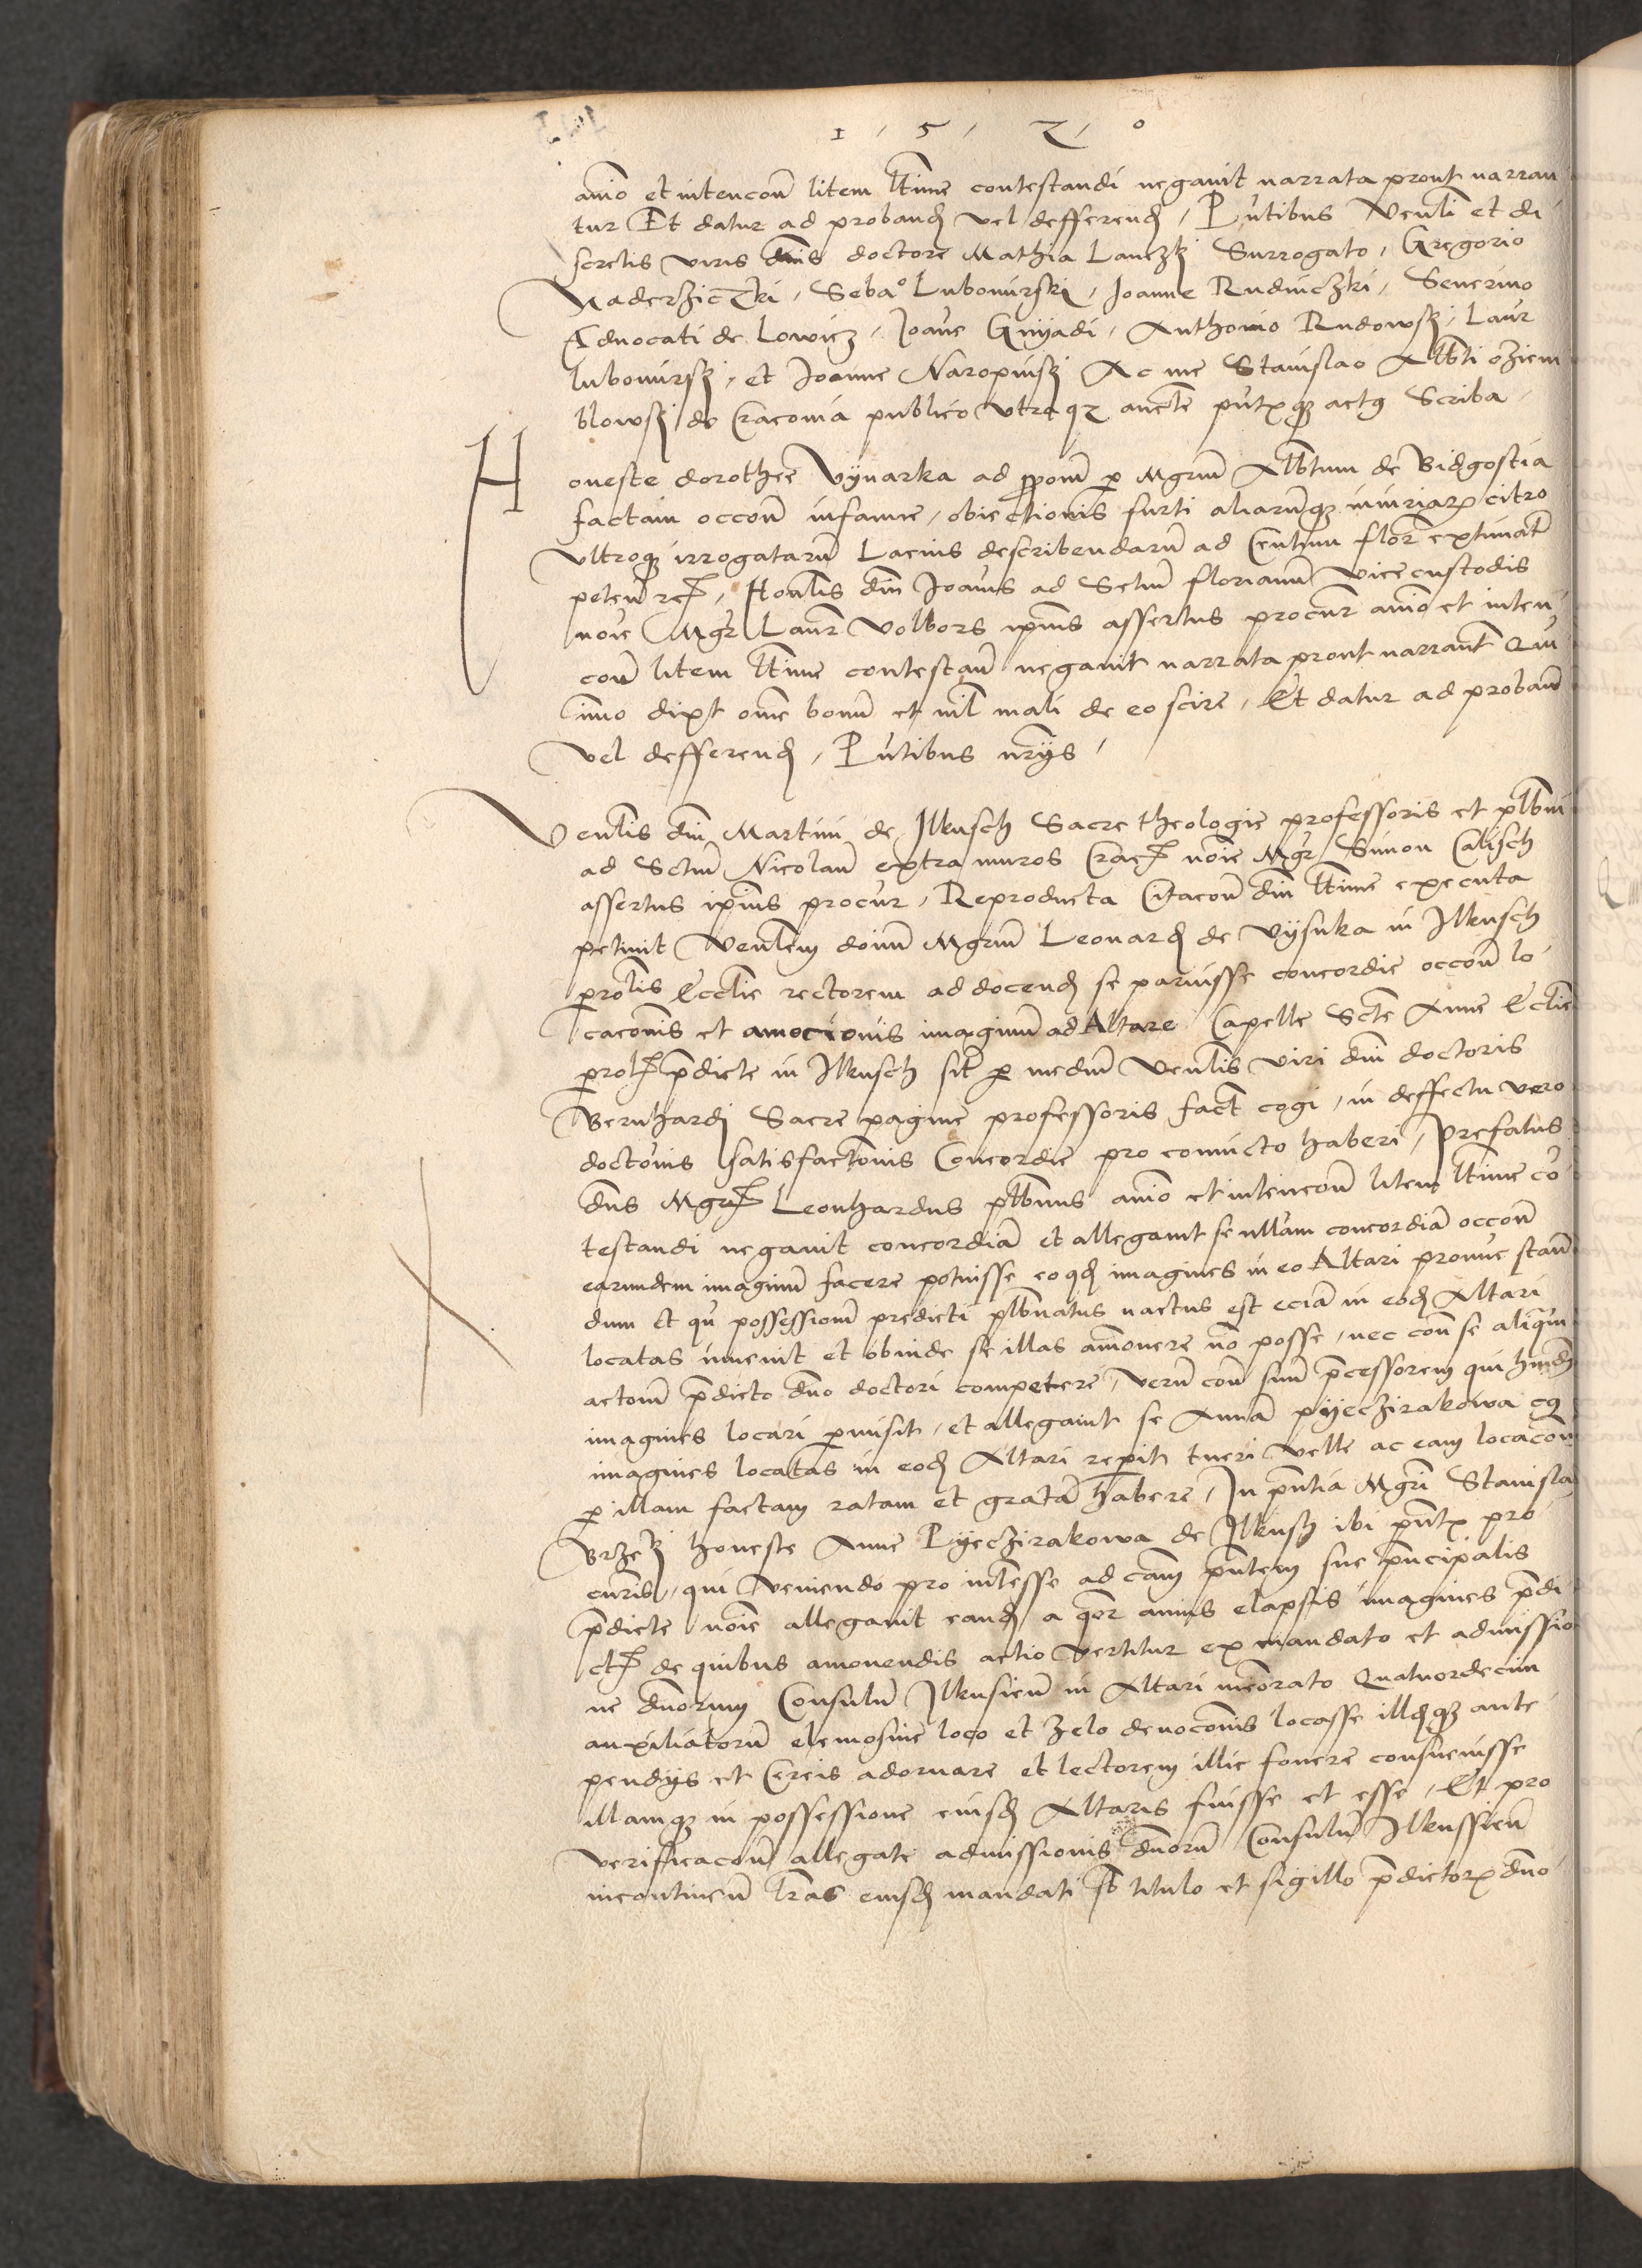 1 5 2 0
anio et intencon litem ltime contestandi negavit narrata prout narran
tur Et datur ad proband vel defferend, Pntibus Venli et di
scretis viris dnis doctore Mathia Lanczki Surrogato, Gregorio
Naderziczki, Seba° Lubomirski, Joanne Rudniczki, Severino
Advocati de Lowicz, Joane Gnyadi, Anthonio Rudowski, Laur
lubomirski, et Joanne Naropinski Ac me Stanislao Alberti oziem
blowski de Cracovia publico utraqz aucte pntiqz actus Scriba
Honeste dorothee Vynarka ad pponm p Mgrum Albtum de Bidgostia
factam occon infamie, obiectionis furti aliarumqz iniuriar citro
ultroqz irrogatarum Lacius describendarum ad Centum flor extimat
peten rc, Honlis dni Joannis ad Sctum florianum vicecustodis
noie Mgr Laur Volbors ipius assertus procur anio et inten
con litem ltime contestan negavit narrata prout narrant Qui
imo dixt ome bonum et nil mali de eo scire, Et datur ad proband
vel defferend, Pntibus uts
Venlis dni Martini de Ilkusch Sacre theologie professoris et plbni
ad Sctum Nicolaum extra muros Crac noie Mgr Simon Calisch
assertus ipius procur, Reproducta Citacon dni ltime executa
petivit Venlem dnum Mgrum Leonard de Vysuka in Ilkusch
prolis Ecclie rectorem ad docend se paruisse concordie occon lo
caconis et amocionis imaginum ad Altare Capelle Scte Anne Ecclie
prol pdicte in Ilkusch sit p medium Venlis viri dni doctoris
Bernhardi Sacre pagine professoris fact cogi, in deffectu vero
doctonis satisfactonis Concordie pro convicto haberi, Prefatus
dns Mgr Leonhardus plbnus anio et intencon litem ltime co
testandi negavit concordiam et allegavit se ullam concordiam occon
earundem imaginum facere potuisse eo qd imagines in eo Altari pronuc stan
dum et qn possessionem predicti plbnatus nactus est eciam in eod Altari
locatas invenit et obinde se illas amovere no posse, nec con se aliqun
actionem pdicto dno doctori competere, verum con suum pcessorem qui hmdi
imagines locari pmisit, et allegavit se Annam pyeczirakowa eq
imagines locatas in eod Altari repit tueri velle ac eam locacon
p illam factam ratam et gratam habere, In pntia Mgri Stanisla
Brzeski honeste Anne Pyeczirakowa de Ilkusch ibi pntis pro
curis, qui veniendo pro interesse ad cam pntem sue pncipalis
pdicte noie allegavit eand a qor annis elapsis imagines pdi
ct de quibus amovendis actio vertitur ex mandato et admissio
ne dnorum Consulum Ilkusien in Altari meorato Quatuordecim
auxiliatorum elemosine loco et zelo devoconis locasse illudqz ante
pendys et Cereis adornare et lectorem illic fovere consuevisse
illamqz in possessione eiusd Altaris fuisse et esse, Et pro
verificacon allegate admissionis dnorum Consulum Ilkussien
incontinen lras eiusd mandati sb titulo et sigillo pdictor dno